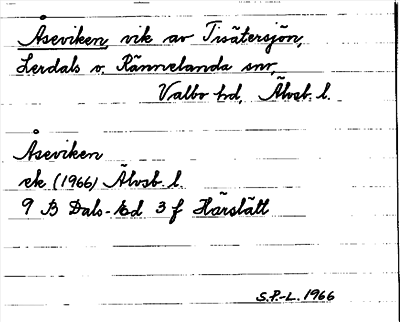 Åseviken, vik av Tisätersjön,
Lerdals o. Rännelanda snr,
Valbo hd, Älvsb. l.
Åseviken
ek (1966) Älvsb. l.
9 B Dals-Ed 3 f Härslätt
S.P.-L. 1966